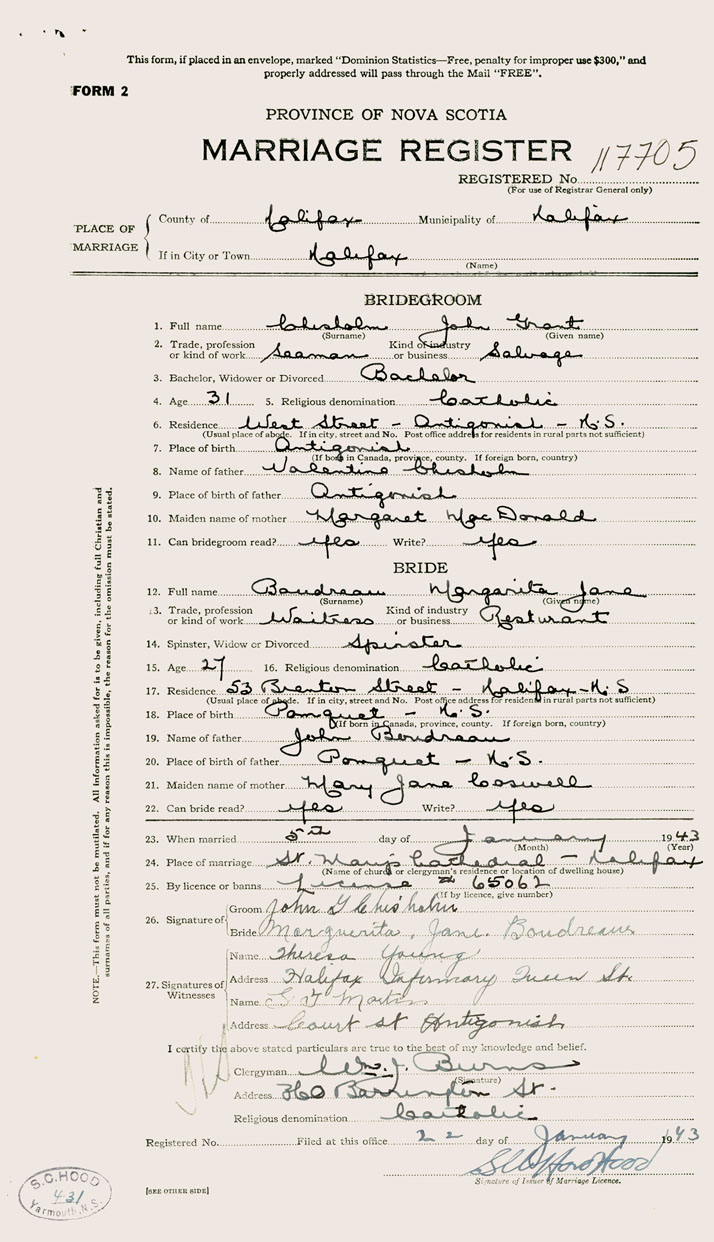 This form, if placed in an envelope, marked "Dominion Statistics—Free, penalty for improper use $300," and
properly addressed will pass through the Mail "FREE".
FORM 2
PROVINCE OF NOVA SCOTIA
MARRIAGE REGISTER 117705
REGISTERED No.
(For use of Registrar General only)
PLACE OF MARRIAGE
County of Halifax Municipality of Halifax
If in City or Town Halifax
(Name)
BRIDEGROOM
1. Full name Chisholm John Grant
(Surname) (Given name)
2. Trade, profession or kind of work Seaman Kind of industry or business Salvage
3. Bachelor, Widower or Divorced Bachelor
4. Age 31 5. Religious denomination Catholic
6. Residence West Street - Antigonish - N.S.
(Usual place of abode. If in city, street and No. Post office address for residents in rural parts not sufficient)
7. Place of birth Antigonish
(If born in Canada, province, county. If foreign born, country)
8. Name of father Valentine Chisholm
9. Place of birth of father Antigonish
10. Maiden name of mother Margaret MacDonald
11. Can bridegroom read? yes Write? yes
BRIDE
12. Full name Boudreau Margarita Jane
(Surname) (Given name)
13. Trade, profession or kind of work Waitress Kind of industry or business Resturant
14. Spinster, Widow or Divorced Spinster
15. Age 27 16. Religious denomination Catholic
17. Residence 53 Brenton Street - Halifax - N.S
(Usual place of abode. If in city, street and No. Post office address for residents in rural parts not sufficient)
18. Place of birth Pomquet - N.S.
(If born in Canada, province, county. If foreign born, country)
19. Name of father John Boudreau
20. Place of birth of father Pomquet - N.S.
21. Maiden name of mother Mary Jane Coswell
22. Can bride read? yes Write? yes
23. When married 5th day of January 1943
(Month) (Year)
24. Place of marriage St. Mary's Cathedral - Halifax
(Name of church or clergyman's residence or location of dwelling house)
25. By licence or banns License # 65062
(If by licence, give number)
26. Signature of
Groom John G Chisholm
Bride Marguerita Jane Boudreau
27. Signatures of Witnesses
Name Theresa Young
Address Halifax Infirmary Queen St.
Name Martin
Address Court st Antigonish
I certify the above stated particulars are true to the best of my knowledge and belief.
Clergyman Wm. J. Burns
(Signature)
Address 360 Barrington St.
Religious denomination Catholic
Registered No. Filed at this office 22 day of January 1943
Signature of Issuer of Marriage Licence.
[SEE OTHER SIDE]
S.C. HOOD
431
Yarmouth, N.S.
NOTE.—This form must not be mutilated. All information asked for is to be given, including full Christian and
surnames of all parties, and if for any reason this is impossible, the reason for the omission must be stated.